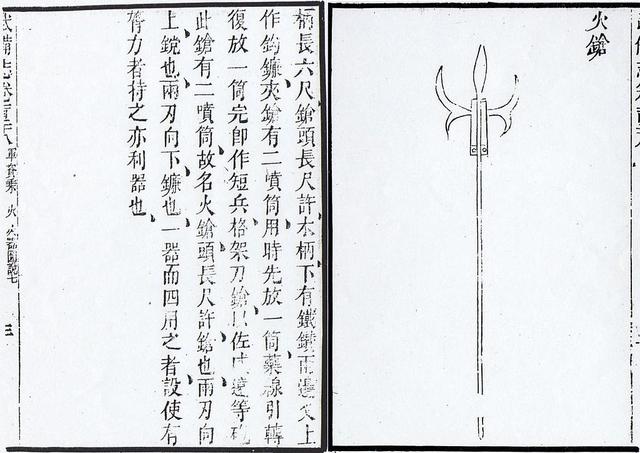 火鎗
柄長六尺鎗頭長尺許木柄下有鐵鑽兩邊叉上
作鈎鐮夾鎗有二噴筒用時先放一筒藥線引轉
復放一筒完卽作短兵格架刀鎗以佐威遠等砲
此鎗有二噴筒故名火鎗頭長尺許鎗也兩刃向
上鎲也兩刃向下鐮也一器而四用之者設使有
膂力者持之亦利器也
武備志卷 軍資乘 火 三